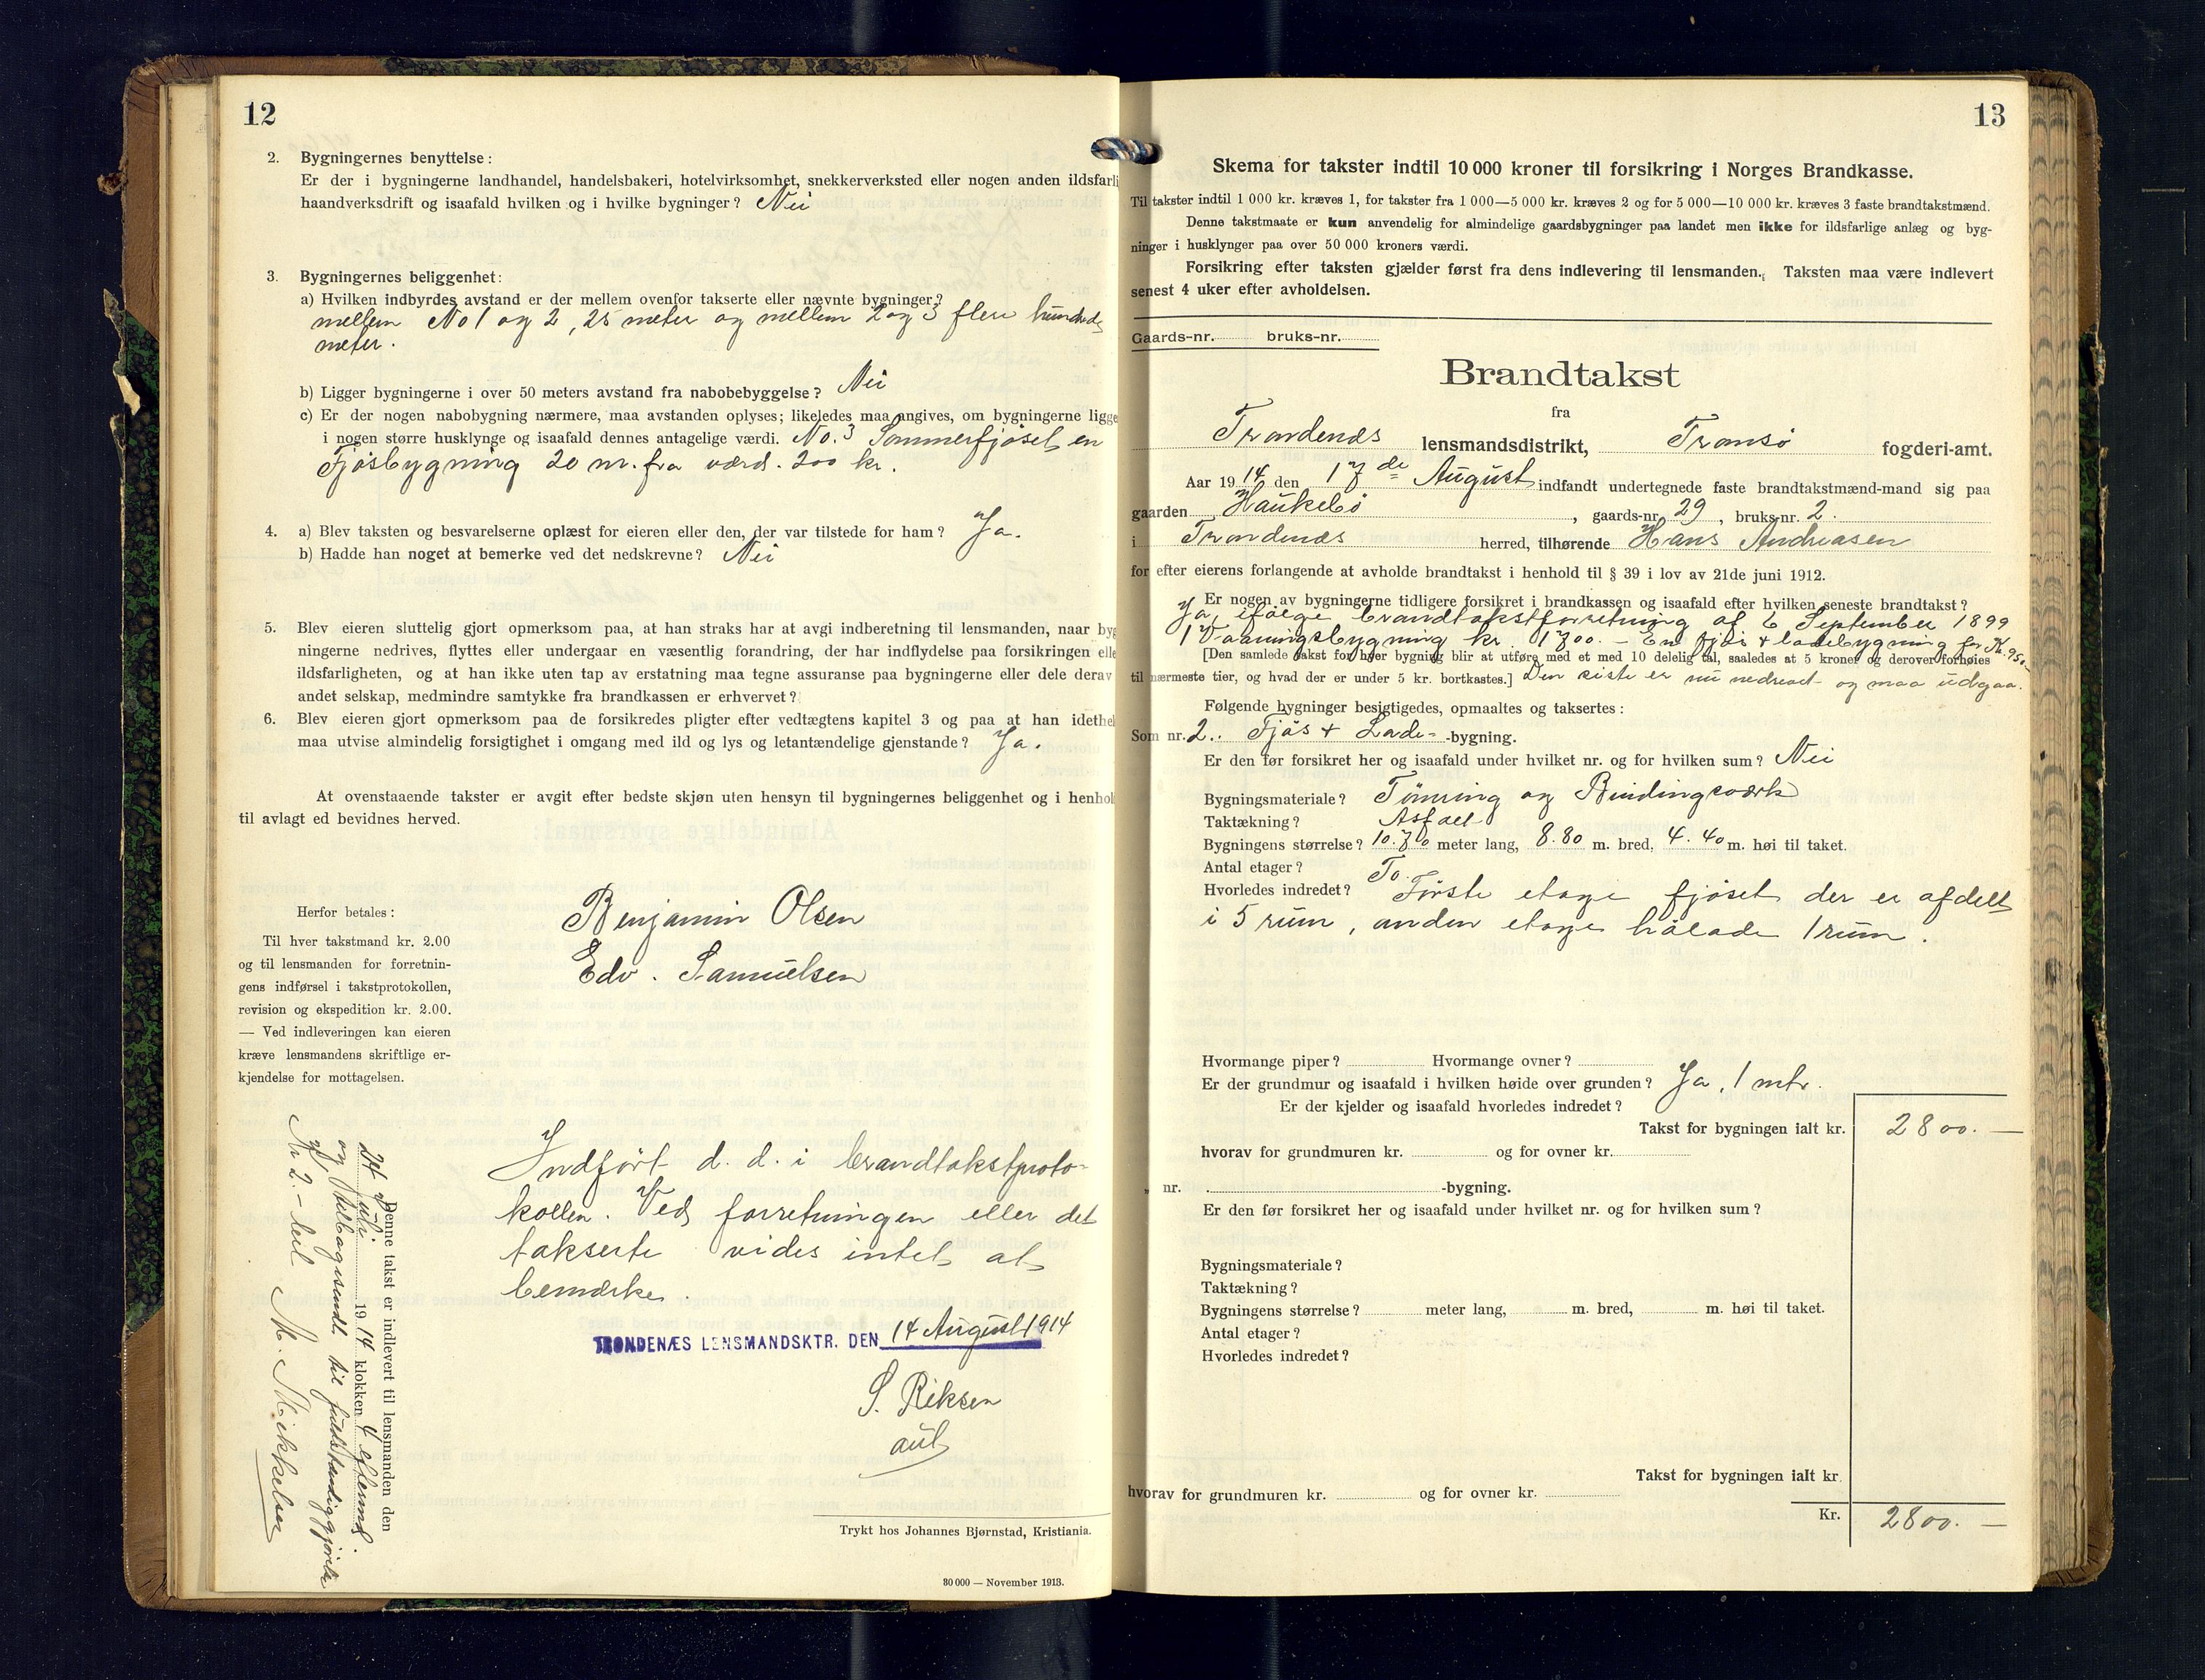 12
2. Bygningernes benyttelse:
Er der i bygningerne landhandel, handelsbakeri, hotelvirksomhet, snekkerverksted eller nogen anden ildsfarli
haandverksdrift og isaafald hvilken og i hvilke bygninger? Nei
3. Bygningernes beliggenhet:
a) Hvilken indbyrdes avstand er der mellem ovenfor takserte eller nævnte bygninger?
mellem No 1 og 2, 25 meter og mellem 2 og 3 flere hundrede
meter.
b) Ligger bygningerne i over 50 meters avstand fra nabobebyggelse? Nei
c) Er der nogen nabobygning nærmere, maa avstanden oplyses; likeledes maa angives, om bygningerne ligge
i nogen større husklynge og isaafald dennes antagelige værdi. No. 3 Sommerfjøset en
Fjøsbygning 20 m. fra værd. 200 kr.
4. a) Blev taksten og besvarelserne oplæst for eieren eller den, der var tilstede for ham? Ja.
b) Hadde han noget at bemerke ved det nedskrevne? Nei
5. Blev eieren sluttelig gjort opmerksom paa, at han straks har at avgi indberetning til lensmanden, naar byg
ningerne nedrives, flyttes eller undergaar en væsentlig forandring, der har indflydelse paa forsikringen elle
ildsfarligheten, og at han ikke uten tap av erstatning maa tegne assuranse paa bygningerne eller dele derav
andet selskap, medmindre samtykke fra brandkassen er erhvervet?
6. Blev eieren gjort opmerksom paa de forsikredes pligter efter vedtægtens kapitel 3 og paa at han idethel
maa utvise almindelig forsigtighet i omgang med ild og lys og letantændelige gjenstande? Ja.
At ovenstaaende takster er avgit efter bedste skjøn uten hensyn til bygningernes beliggenhet og i henhol
til avlagt ed bevidnes herved.
Benjamin Olsen
Edv. Samuelsen
Herfor betales:
Til hver takstmand kr. 2.00
og til lensmanden for forretnin-
gens indførsel i takstprotokollen,
revision og ekspedition kr. 2.00.
— Ved indleveringen kan eieren
kræve lensmandens skriftlige er-
kjendelse for mottagelsen.
Denne takst er indlevert til lensmanden den
24 Juli 1914 klokken 4 efterm.
og tilbagesendt til fuldstændiggjørelse
Nr 2.- leil M. Mikkelsen
Indført d. d. i brandtakstproto-
kollen. Ved forretningen eller det
takserte vides intet at
bemærke.
TRONDENÆS LENSMANDSKTR. DEN 14 August 1914
S. Riksen
aut
Trykt hos Johannes Bjørnstad, Kristiania.
30 000 — November 1913.
13
Skema for takster indtil 10 000 kroner til forsikring i Norges Brandkasse.
Til takster indtil 1 000 kr. kræves 1, for takster fra 1 000—5 000 kr. kræves 2 og for 5 000—10 000 kr. kræves 3 faste brandtakstmænd.
Denne takstmaate er kun anvendelig for almindelige gaardsbygninger paa landet men ikke for ildsfarlige anlæg og byg-
ninger i husklynger paa over 50 000 kroners værdi.
Forsikring efter taksten gjælder først fra dens indlevering til lensmanden. Taksten maa være indlevert
senest 4 uker efter avholdelsen.
Gaards-nr. bruks-nr.
Brandtakst
fra
Trondenæs lensmandsdistrikt, Tromsø fogderi-amt.
Aar 1914 den 17de August indfandt undertegnede faste brandtakstmænd-mand sig paa
gaarden Haukebø, gaards-nr. 29, bruks-nr. 2.
i Trondenæs herred, tilhørende Hans Andreasen
for efter eierens forlangende at avholde brandtakst i henhold til § 39 i lov av 21de juni 1912.
Er nogen av bygningerne tidligere forsikret i brandkassen og isaafald efter hvilken seneste brandtakst?
Ja, ifølge brandtakstforretning af 6 September 1899
1 Vaaningsbygning kr. 1700. - En fjøs + ladebygning for Kr. 950.-
[Den samlede takst for hver bygning blir at utføre med et med 10 delelig tal, saaledes at 5 kroner og derover forhøies
til nærmeste tier, og hvad der er under 5 kr. bortkastes.] Den siste er nu nedrevet og maa udgaa.
Følgende bygninger besigtigedes, opmaaltes og taksertes:
Som nr. 2. Fjøs + Lade- -bygning.
Er den før forsikret her og isaafald under hvilket nr. og for hvilken sum? Nei
Bygningsmateriale? Tømring og Bindingsværk
Taktækning? Asfalt
Bygningens størrelse? 10.70 meter lang, 8.80 m. bred, 4.40 m. høi til taket.
Antal etager? To.
Hvorledes indredet? Første etage fjøset der er afdelt
i 5 rum, anden etage hølade 1 rum.
Hvormange piper? Hvormange ovner?
Er der grundmur og isaafald i hvilken høide over grunden? Ja, 1 mtr.
Er der kjelder og isaafald hvorledes indredet?
Takst for bygningen ialt kr. 2800.—
hvorav for grundmuren kr. og for ovner kr.
„ nr. -bygning.
Er den før forsikret her og isaafald under hvilket nr. og for hvilken sum?
Bygningsmateriale?
Taktækning?
Bygningens størrelse? meter lang, m. bred, m. høi til taket.
Antal etager?
Hvorledes indredet?
Takst for bygningen ialt kr.
hvorav for grundmuren kr. og for ovner kr.
Kr. 2800.—